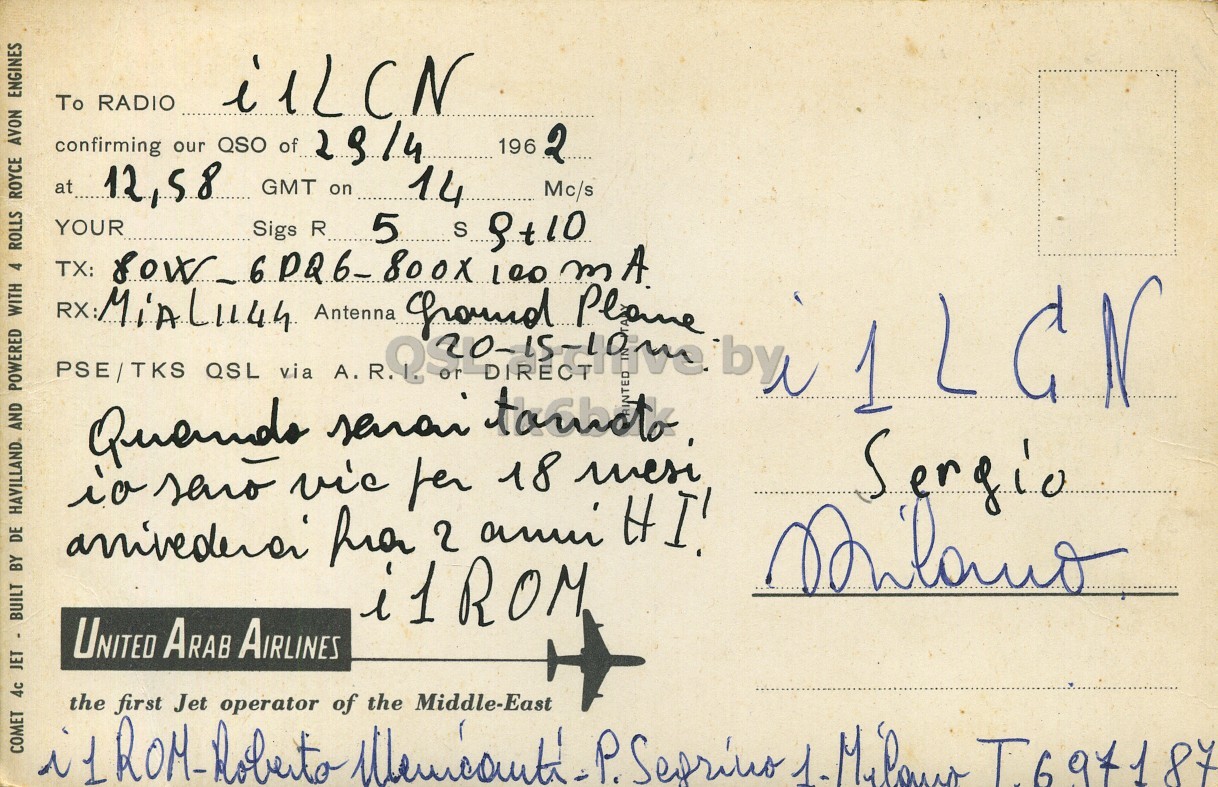 COMET 4c JET - BUILT BY DE HAVILLAND AND POWERED WITH 4 ROLLS ROYCE AVON ENGINES
To RADIO i1LCN
confirming our QSO of 29/4 1962
at 12,58 GMT on 14 Mc/s
YOUR Sigs R 5 S 9+10
TX: 80W - 6DQ6 - 800X100 mA
RX: MiAL1144 Antenna Ground Plane
20-15-10 m.
PSE/TKS QSL via A.R.I. or DIRECT
PRINTED IN ITALY
QSL archive by
Ik6buk
Quando sarai tornato,
io sarò via per 18 mesi,
arrivederci fra 2 anni HI!
i1ROM
UNITED ARAB AIRLINES
the first Jet operator of the Middle-East
i1LCN
Sergio
Milano
i1ROM - Roberto - P. Segrino 1 - Milano T. 697187